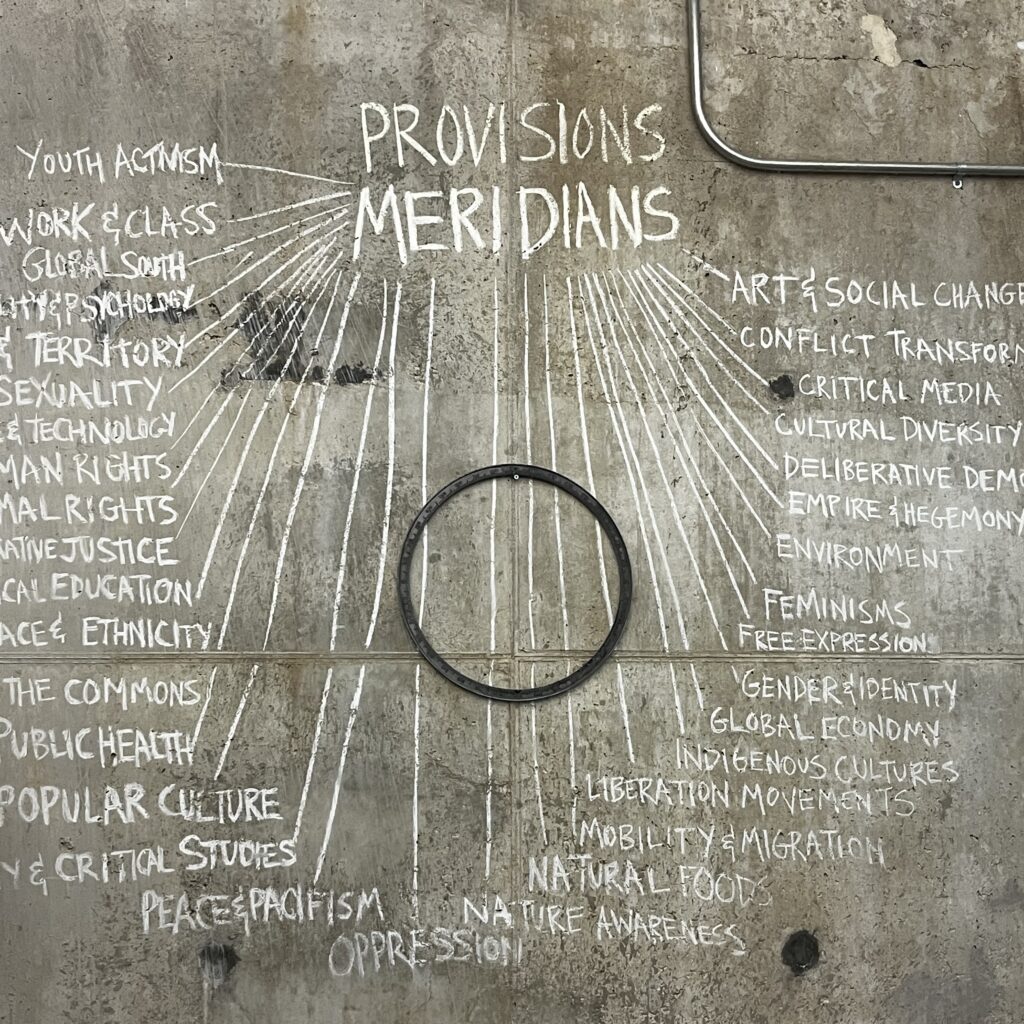 PROVISIONS
MERIDIANS
YOUTH ACTIVISM
WORK & CLASS
GLOBAL SOUTH
& PSYCHOLOGY
& TERRITORY
SEXUALITY
& TECHNOLOGY
RIGHTS
RIGHTS
JUSTICE
EDUCATION
& ETHNICITY
THE COMMONS
PUBLIC HEALTH
POPULAR CULTURE
& CRITICAL STUDIES
PEACE & PACIFISM
OPPRESSION
ART & SOCIAL CHANGE
CONFLICT TRANSFORM
CRITICAL MEDIA
CULTURAL DIVERSITY
DELIBERATIVE DEMO
EMPIRE & HEGEMONY
ENVIRONMENT
FEMINISMS
FREE EXPRESSION
GENDER & IDENTITY
GLOBAL ECONOMY
INDIGENOUS CULTURES
LIBERATION MOVEMENTS
MOBILITY & MIGRATION
NATURAL FOODS
NATURE AWARENESS